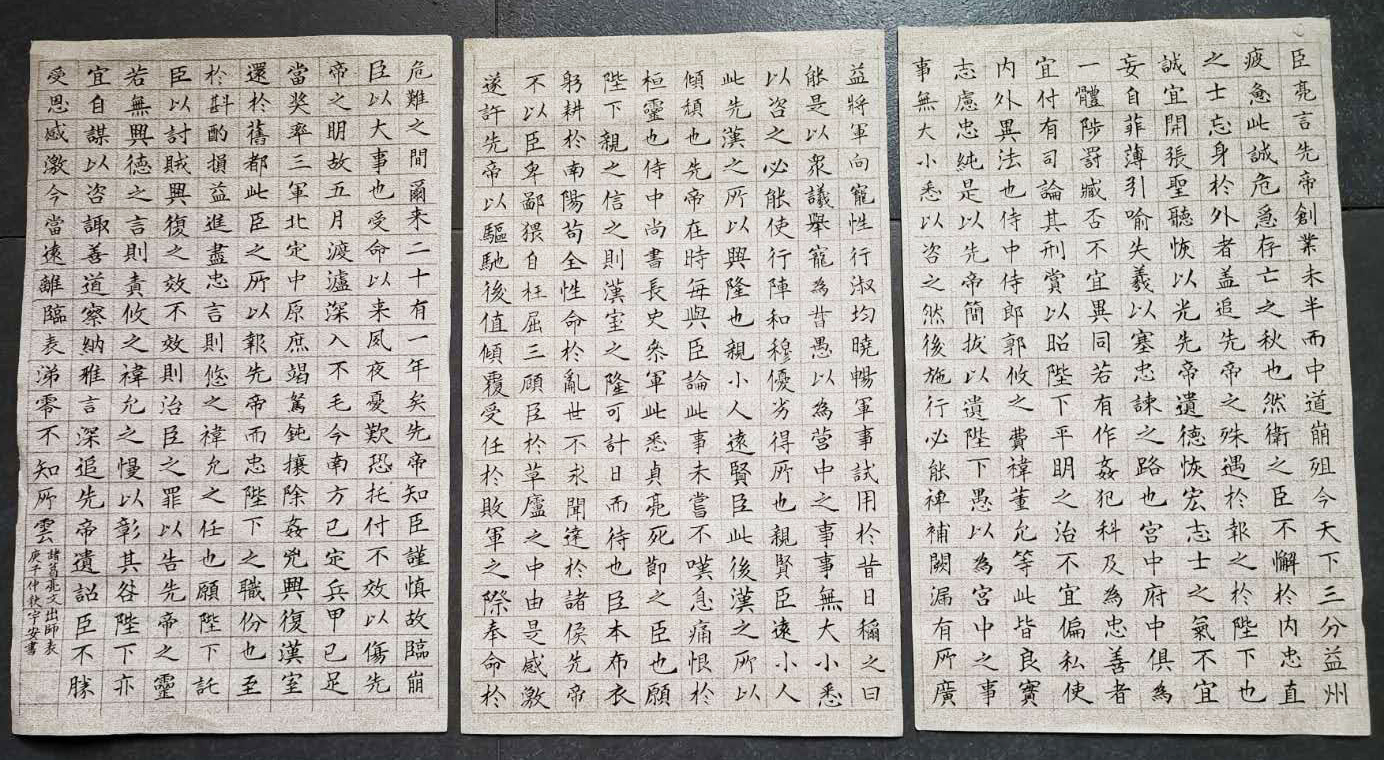 臣亮言先帝創業未半而中道崩殂今天下三分益州
疲惫此誠危急存亡之秋也然衛之臣不懈於内忠直
之士忘身於外者盖追先帝之殊遇於報之於陛下也
誠宜開張聖聽恢以光先帝遺德恢宏志士之氣不宜
妄自菲薄引喻失義以塞忠諫之路也宮中府中俱為
一體陟罰臧否不宜異同若有作姦犯科及為忠善者
宜付有司論其刑賞以昭陛下平明之治不宜偏私使
内外異法也侍中侍郎郭攸之費禕董允等此皆良實
志慮忠純是以先帝簡拔以遺陛下愚以為宮中之事
事無大小悉以咨之然後施行必能裨補闕漏有所廣
益將軍向寵性行淑均曉暢軍事試用於昔日稱之曰
能是以衆議舉寵為督愚以為營中之事事無大小悉
以咨之必能使行陣和穆優劣得所也親賢臣遠小人
此先漢之所以興隆也親小人遠賢臣此後漢之所以
傾頹也先帝在時每與臣論此事未嘗不嘆息痛恨於
桓靈也侍中尚書長史參軍此悉貞亮死節之臣也願
陛下親之信之則漢室之隆可計日而待也臣本布衣
躬耕於南陽苟全性命於亂世不求聞達於諸侯先帝
不以臣卑鄙猥自枉屈三顧臣於草廬之中由是感激
遂許先帝以驅馳後值傾覆受任於敗軍之際奉命於
危難之間爾来二十有一年矣先帝知臣謹慎故臨崩
臣以大事也受命以来夙夜憂歎恐托付不效以傷先
帝之明故五月渡瀘深入不毛今南方已定兵甲已足
當奖率三軍北定中原庶竭駑鈍攘除姦兇興復漢室
還於舊都此臣之所以報先帝而忠陛下之職份也至
於斟酌損益進盡忠言則攸之禕允之任也願陛下託
臣以討賊興復之效不效則治臣之罪以告先帝之靈
若無興德之言則責攸之禕允之慢以彰其咎陛下亦
宜自謀以咨諏善道察納雅言深追先帝遺詔臣不勝
受恩感激今當遠離臨表涕零不知所雲
諸葛亮文出師表
庚子仲秋宇安書